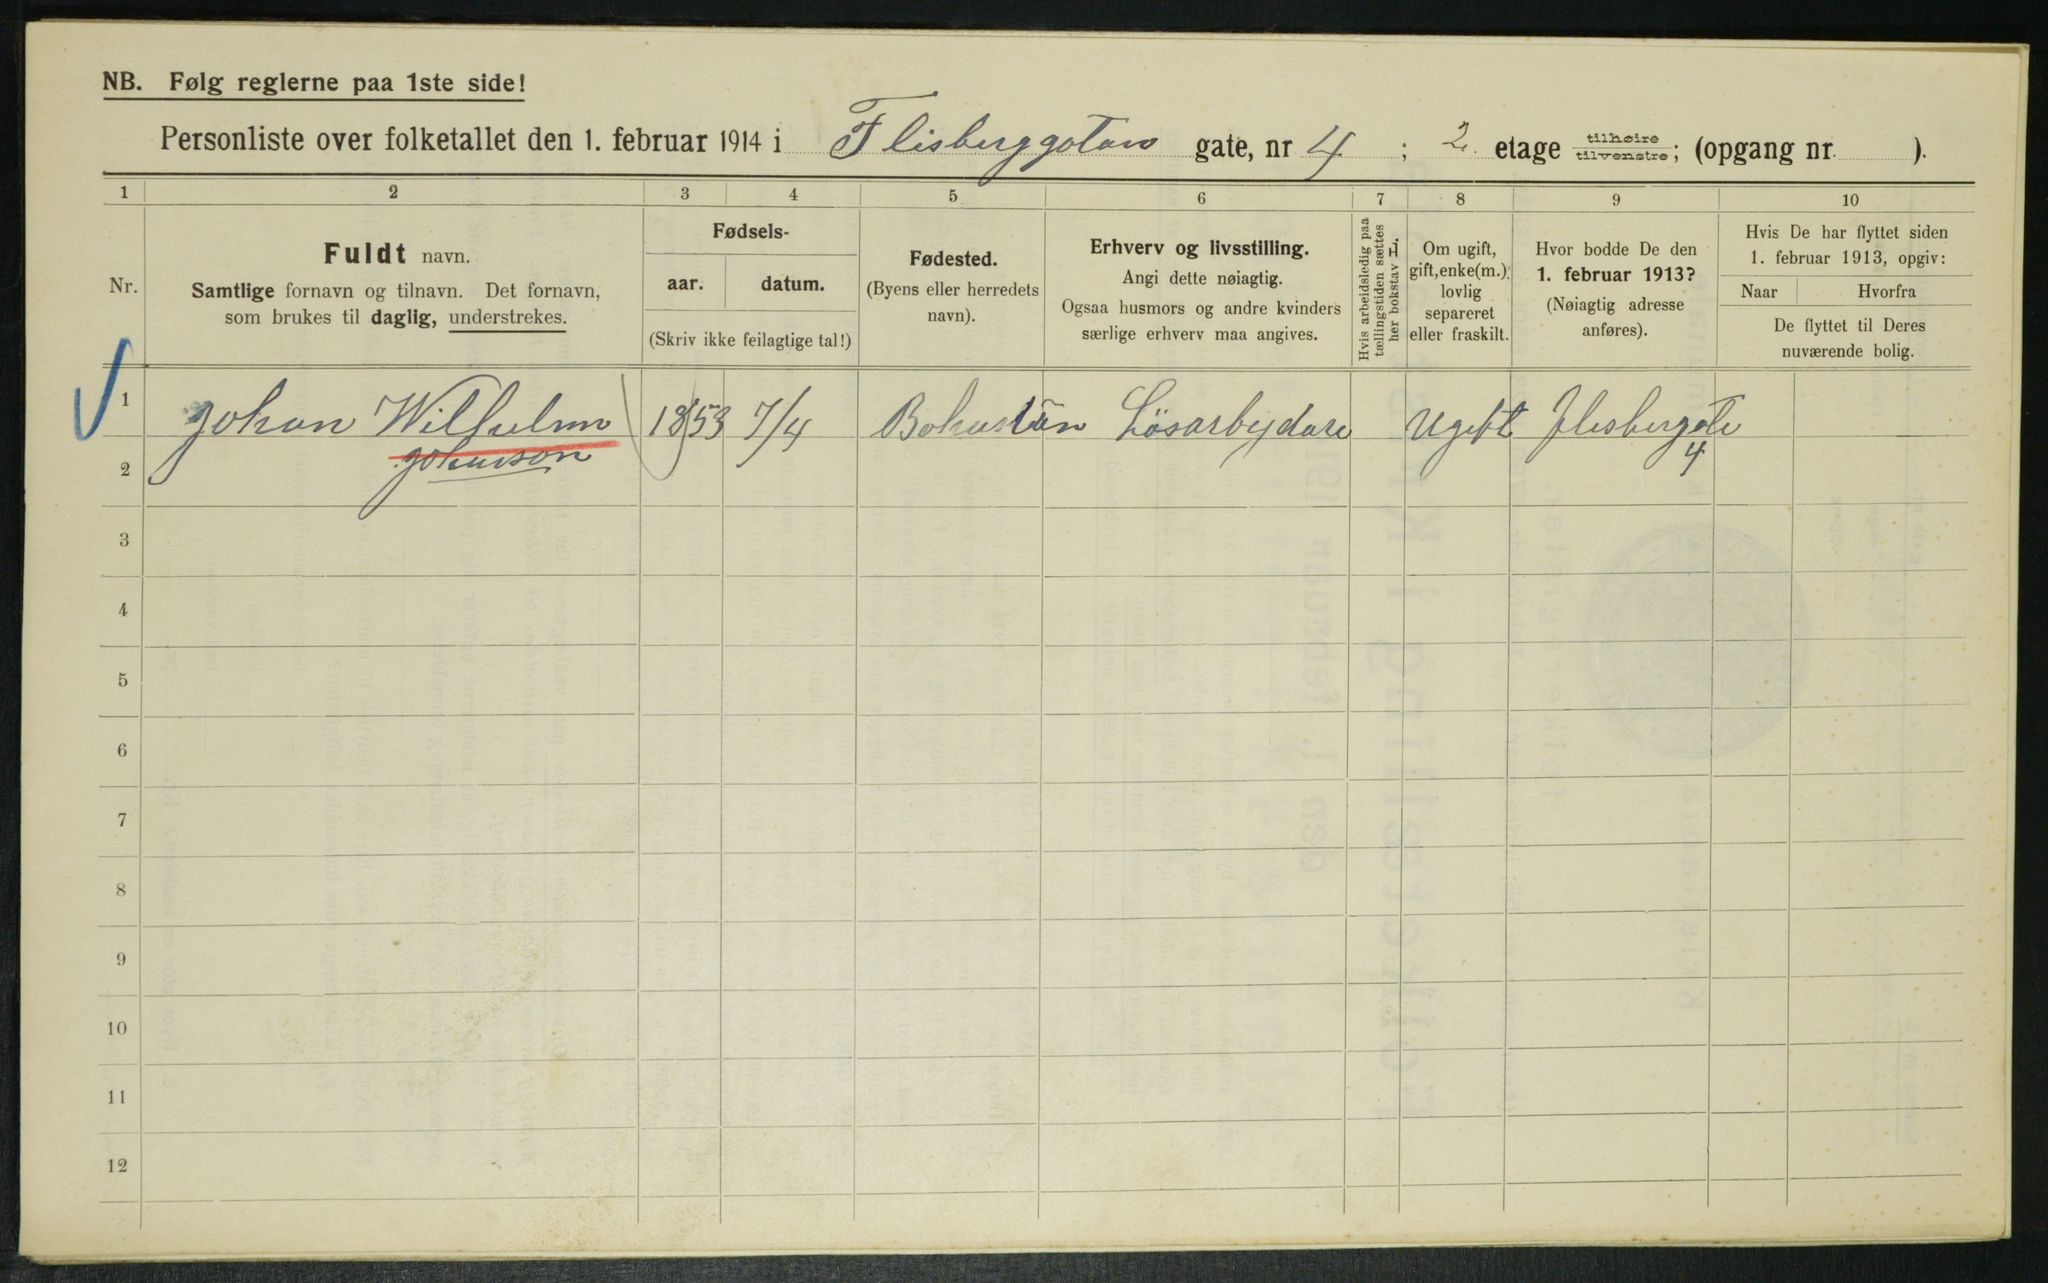 NB. Følg reglerne paa 1ste side!
Personliste over folketallet den 1. februar 1914 i Flisberggotan gate, nr 4 ; 2. etage tilhøire tilvenstre; (opgang nr. ).
1 2 3 4 5 6 7 8 9 10
Nr.
Fuldt navn.
Samtlige fornavn og tilnavn. Det fornavn,
som brukes til daglig, understrekes.
Fødsels-
aar. datum.
(Skriv ikke feilagtige tal!)
Fødested.
(Byens eller herredets
navn).
Erhverv og livsstilling.
Angi dette nøiagtig.
Ogsaa husmors og andre kvinders
særlige erhverv maa angives.
Hvis arbeidsledig paa
tællingstiden sættes
her bokstav L.
Om ugift,
gift, enke(m.),
lovlig
separeret
eller fraskilt.
Hvor bodde De den
1. februar 1913?
(Nøiagtig adresse
anføres).
Hvis De har flyttet siden
1. februar 1913, opgiv:
Naar Hvorfra
De flyttet til Deres
nuværende bolig.
1 Johan Wilhelm 1853 7/4 Bohuslän Lösarbejdare Ugift Flisbergate
2 Johanson 4
3
4
5
6
7
8
9
10
11
12